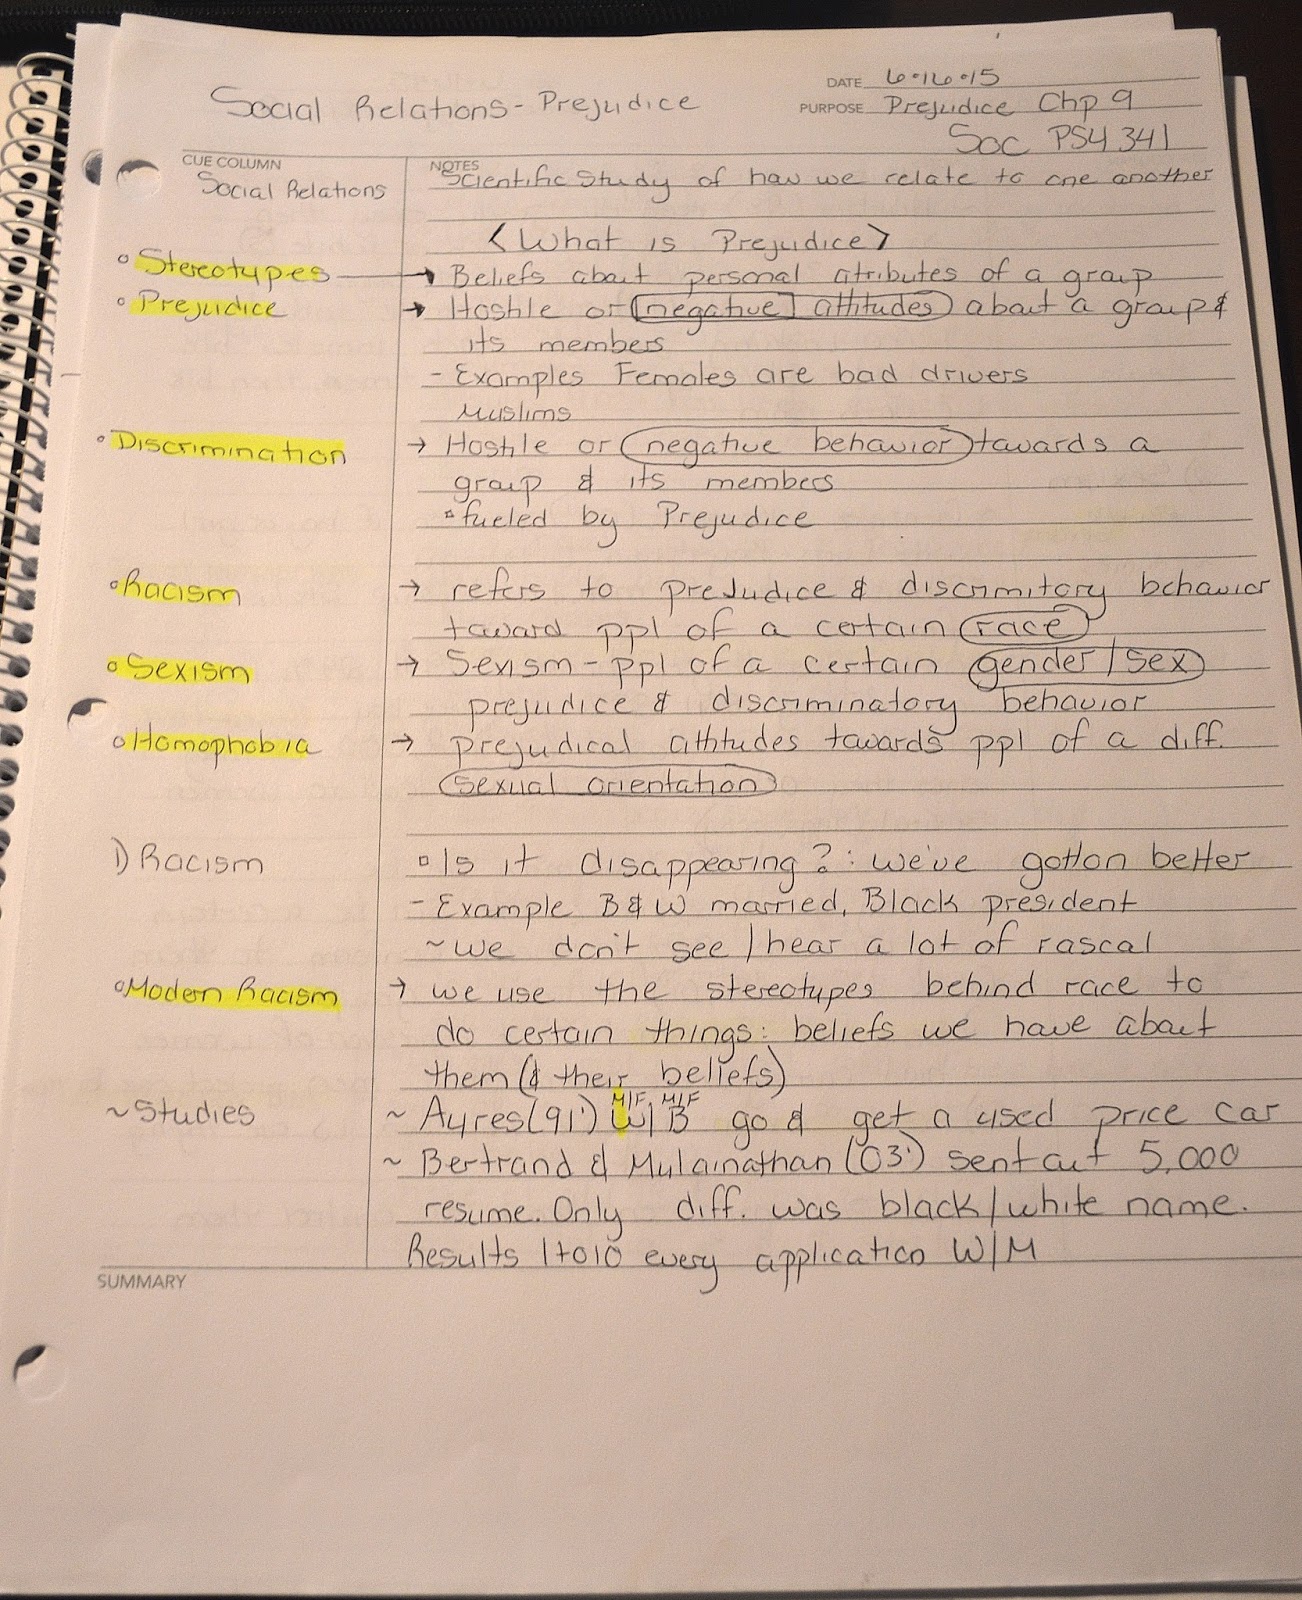 DATE 6·16·15
Social Relations - Prejudice
PURPOSE Prejudice Chp 9
Soc PS4 341
CUE COLUMN
NOTES
Social Relations
Scientific study of how we relate to one another
<What is Prejudice>
Stereotypes → Beliefs about personal atributes of a group
Prejudice → Hostile or negative attitudes about a group &
its members
- Examples Females are bad drivers
Muslims
Discrimination → Hostile or negative behavior towards a
group & its members
fueled by Prejudice
Racism → refers to prejudice & discrimitory behavior
toward ppl of a certain race
Sexism → Sexism - ppl of a certain gender/sex
prejudice & discriminatory behavior
Homophobia → prejudical attitudes towards ppl of a diff.
sexual orientation
1) Racism Is it disappearing?: we've gotton better
- Example B & W married, Black president
~ we don't see/hear a lot of rascal
Modern Racism → we use the stereotypes behind race to
do certain things: beliefs we have about
them (& their beliefs)
M/F M/F
~ Studies ~ Ayres (91') W/B go & get a used price car
~ Bertrand & Mulainathan (03') sent out 5,000
resume. Only diff. was black/white name.
Results 1 to 10 every application W/M
SUMMARY